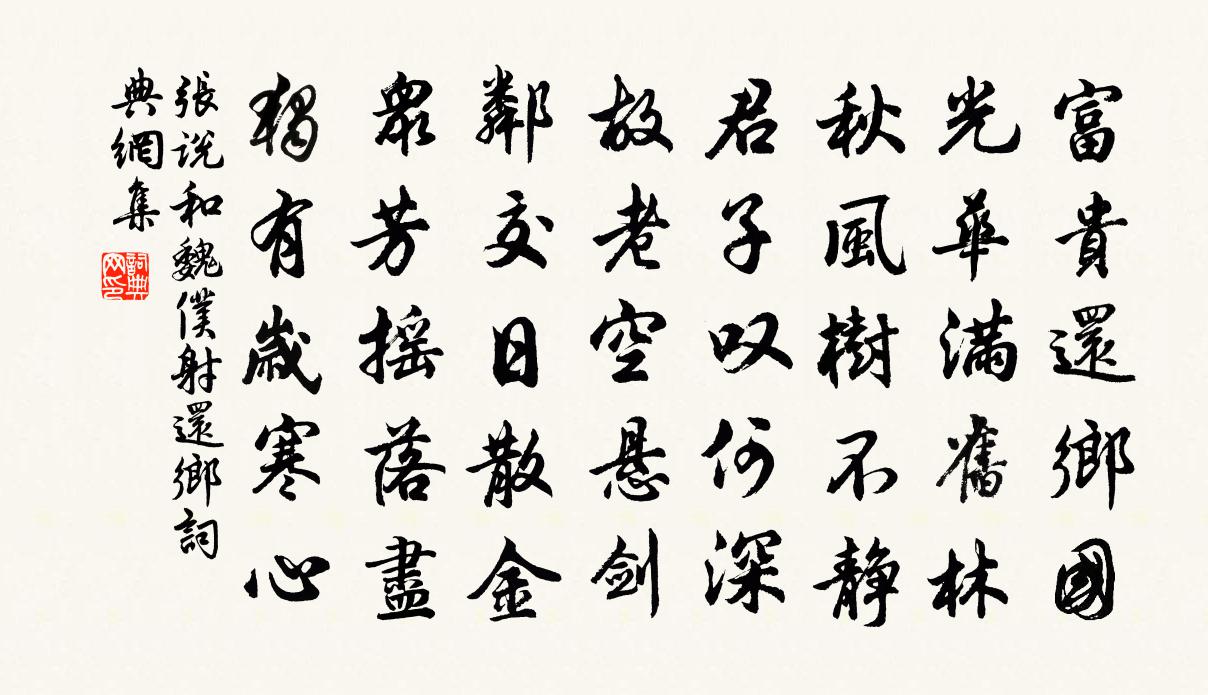 富貴還鄉國
光華滿舊林
秋風樹不静
君子叹何深
故老空悬剑
鄰交日散金
衆芳摇落盡
獨有歲寒心
張说和魏僕射還鄉詞
典網集
詞典
网印